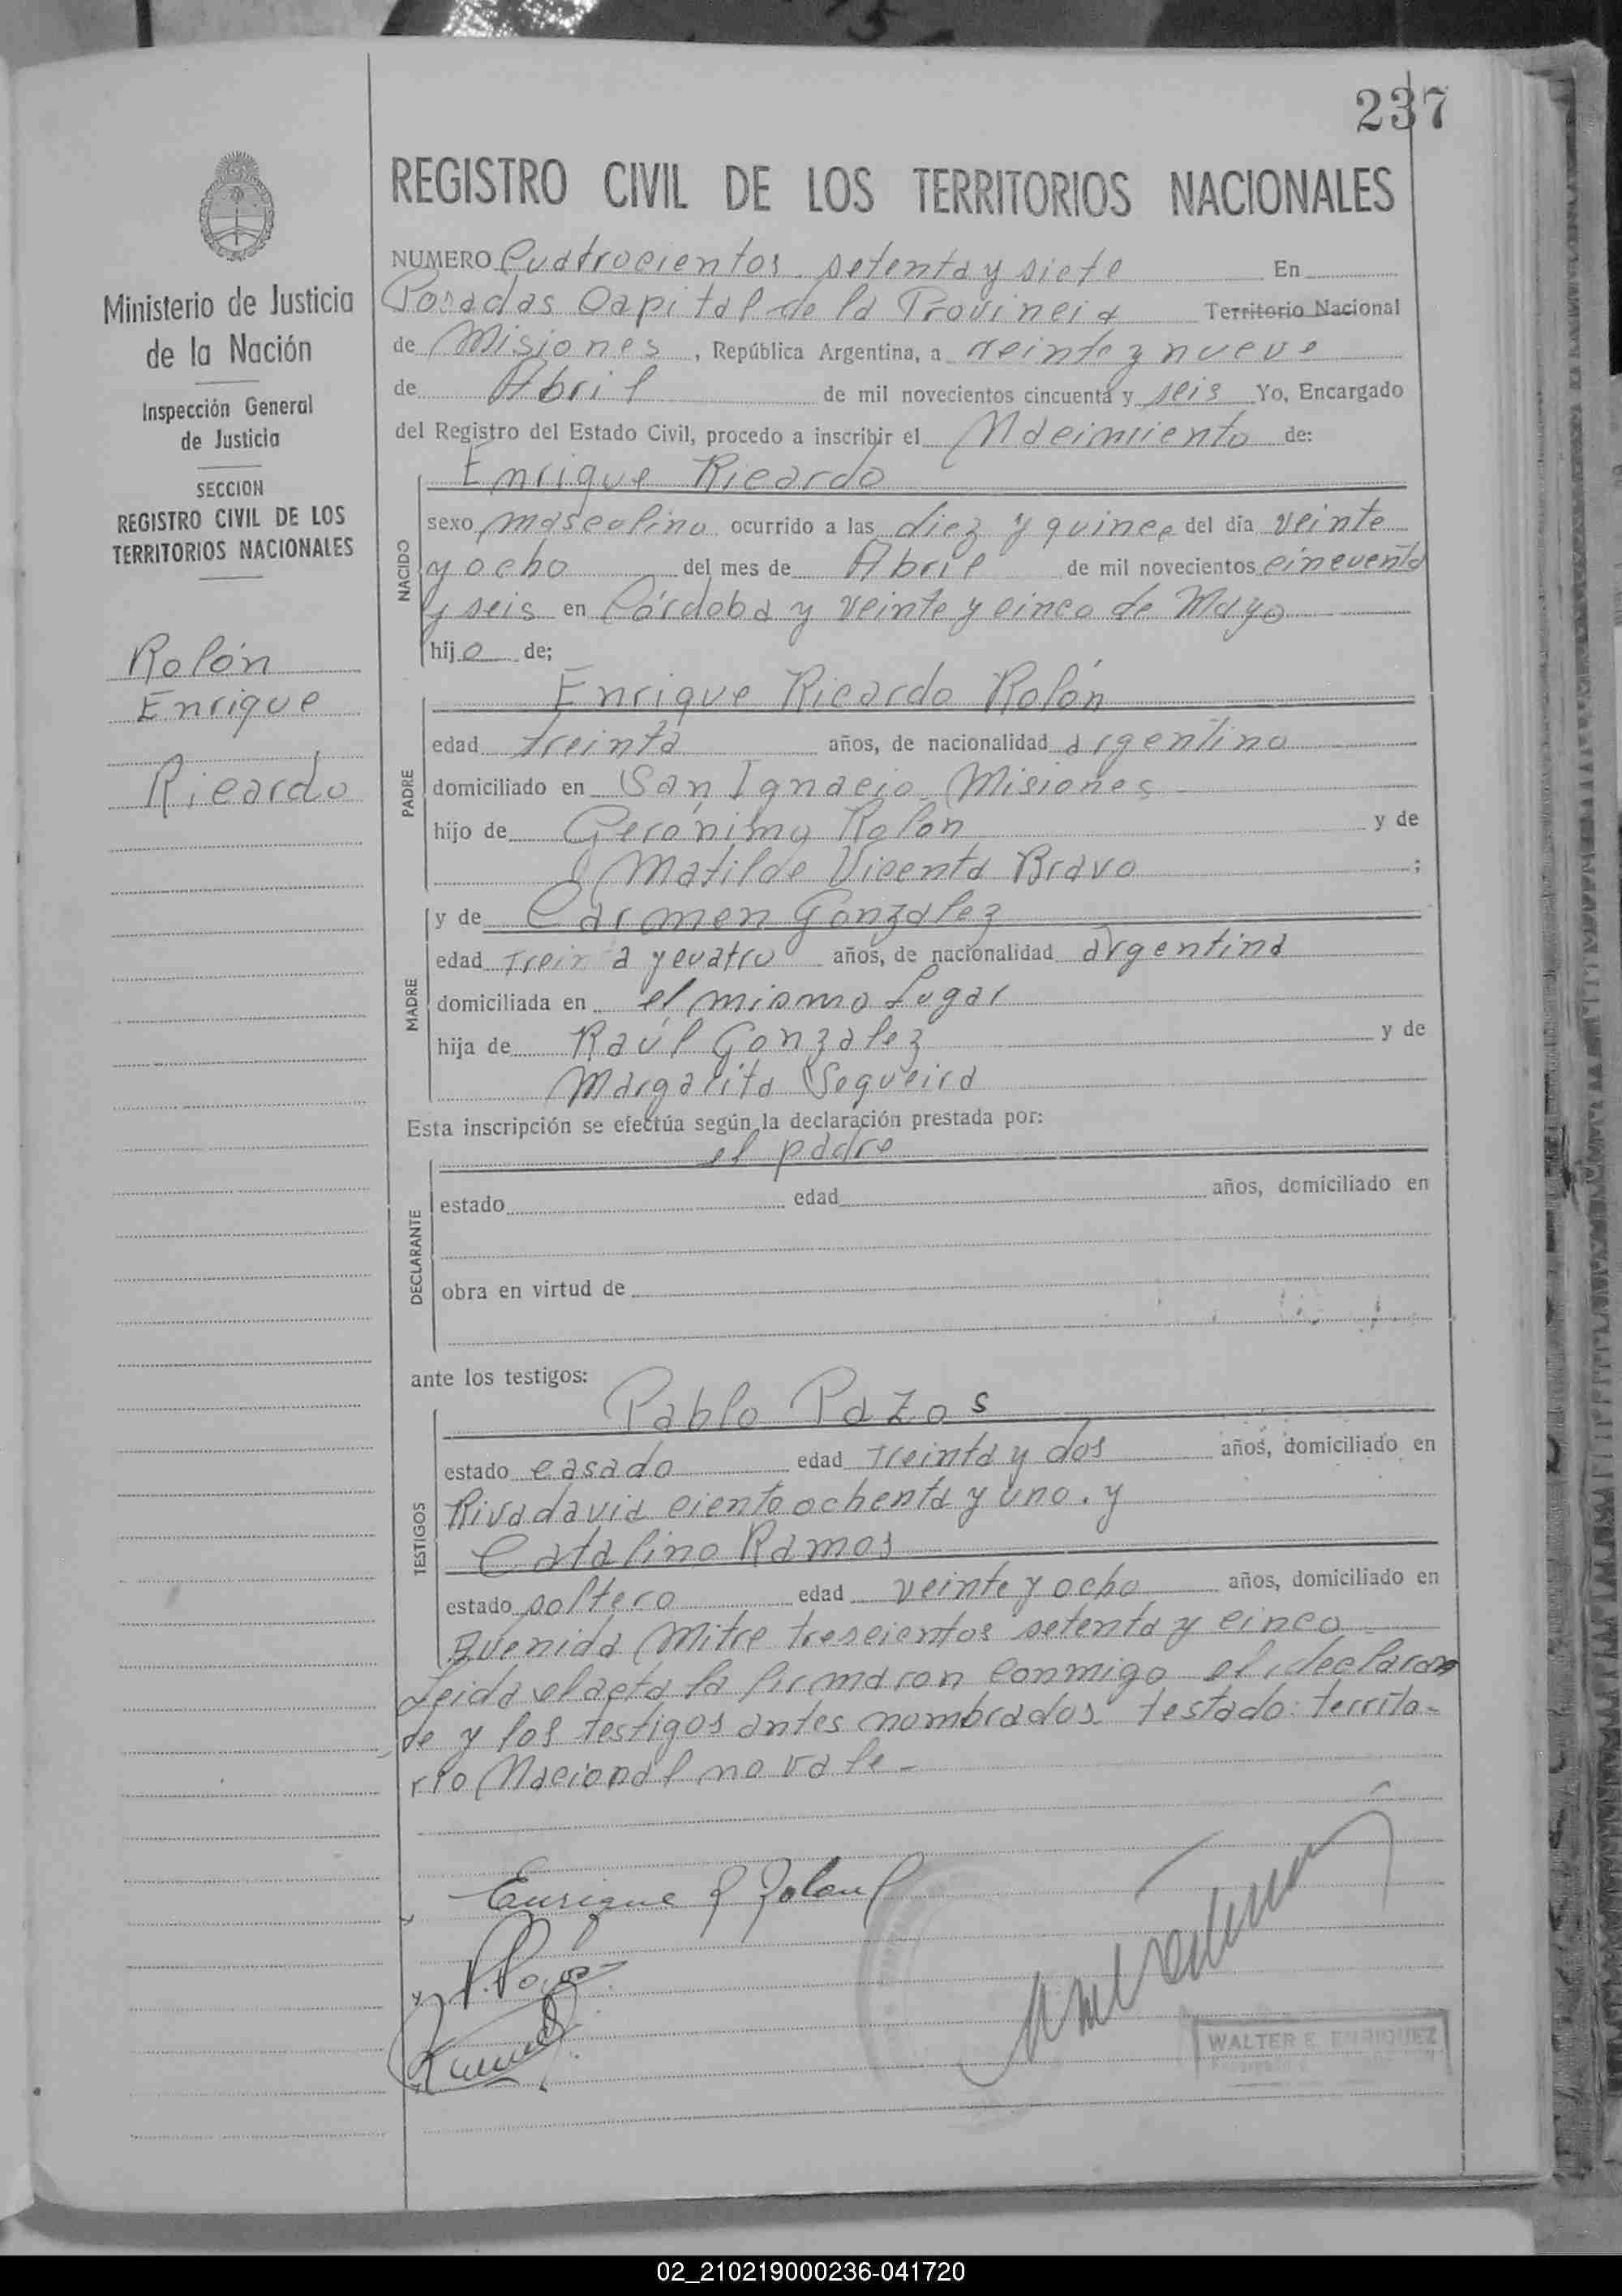 237
REGISTRO CIVIL DE LOS TERRITORIOS NACIONALES
Ministerio de Justicia
de la Nación
Inspección General
de Justicia
SECCION
REGISTRO CIVIL DE LOS
TERRITORIOS NACIONALES
Rolón
Enrique
Ricardo
NUMERO Cuatrocientos setenta y siete En
Posadas Capital de la Provincia Territorio Nacional
de Misiones, República Argentina, a veinte y nueve
de Abril de mil novecientos cincuenta y seis Yo, Encargado
del Registro del Estado Civil, procedo a inscribir el Nacimiento de:
NACIDO
Enrique Ricardo
sexo masculino ocurrido a las diez y quince del día veinte
y ocho del mes de Abril de mil novecientos cincuenta
y seis en Córdoba y veinte y cinco de Mayo
hijo de;
PADRE
Enrique Ricardo Rolón
edad treinta años, de nacionalidad argentino
domiciliado en San Ignacio Misiones
hijo de Gerónimo Rolón y de
Matilde Vicenta Bravo ;
MADRE
y de Cármen Gonzalez
edad trein a y cuatro años, de nacionalidad argentina
domiciliada en el mismo lugar
hija de Raúl Gonzalez y de
Margarita Sequeira
Esta inscripción se efectúa según la declaración prestada por:
DECLARANTE
el padre
estado edad años, domiciliado en
obra en virtud de
ante los testigos:
TESTIGOS
Pablo Pazos
estado casado edad treinta y dos años, domiciliado en
Rivadavia ciento ochenta y uno. y
Catalino Ramos
estado soltero edad veinte y ocho años, domiciliado en
Avenida Mitre trescientos setenta y cinco
Leida el acta la firmaron conmigo el declaran
te y los testigos antes nombrados testado: territo-
rio Nacional no vale-
Enrique R Rolon
P. Pazos
WALTER E. ENRIQUEZ
02_210219000236-041720